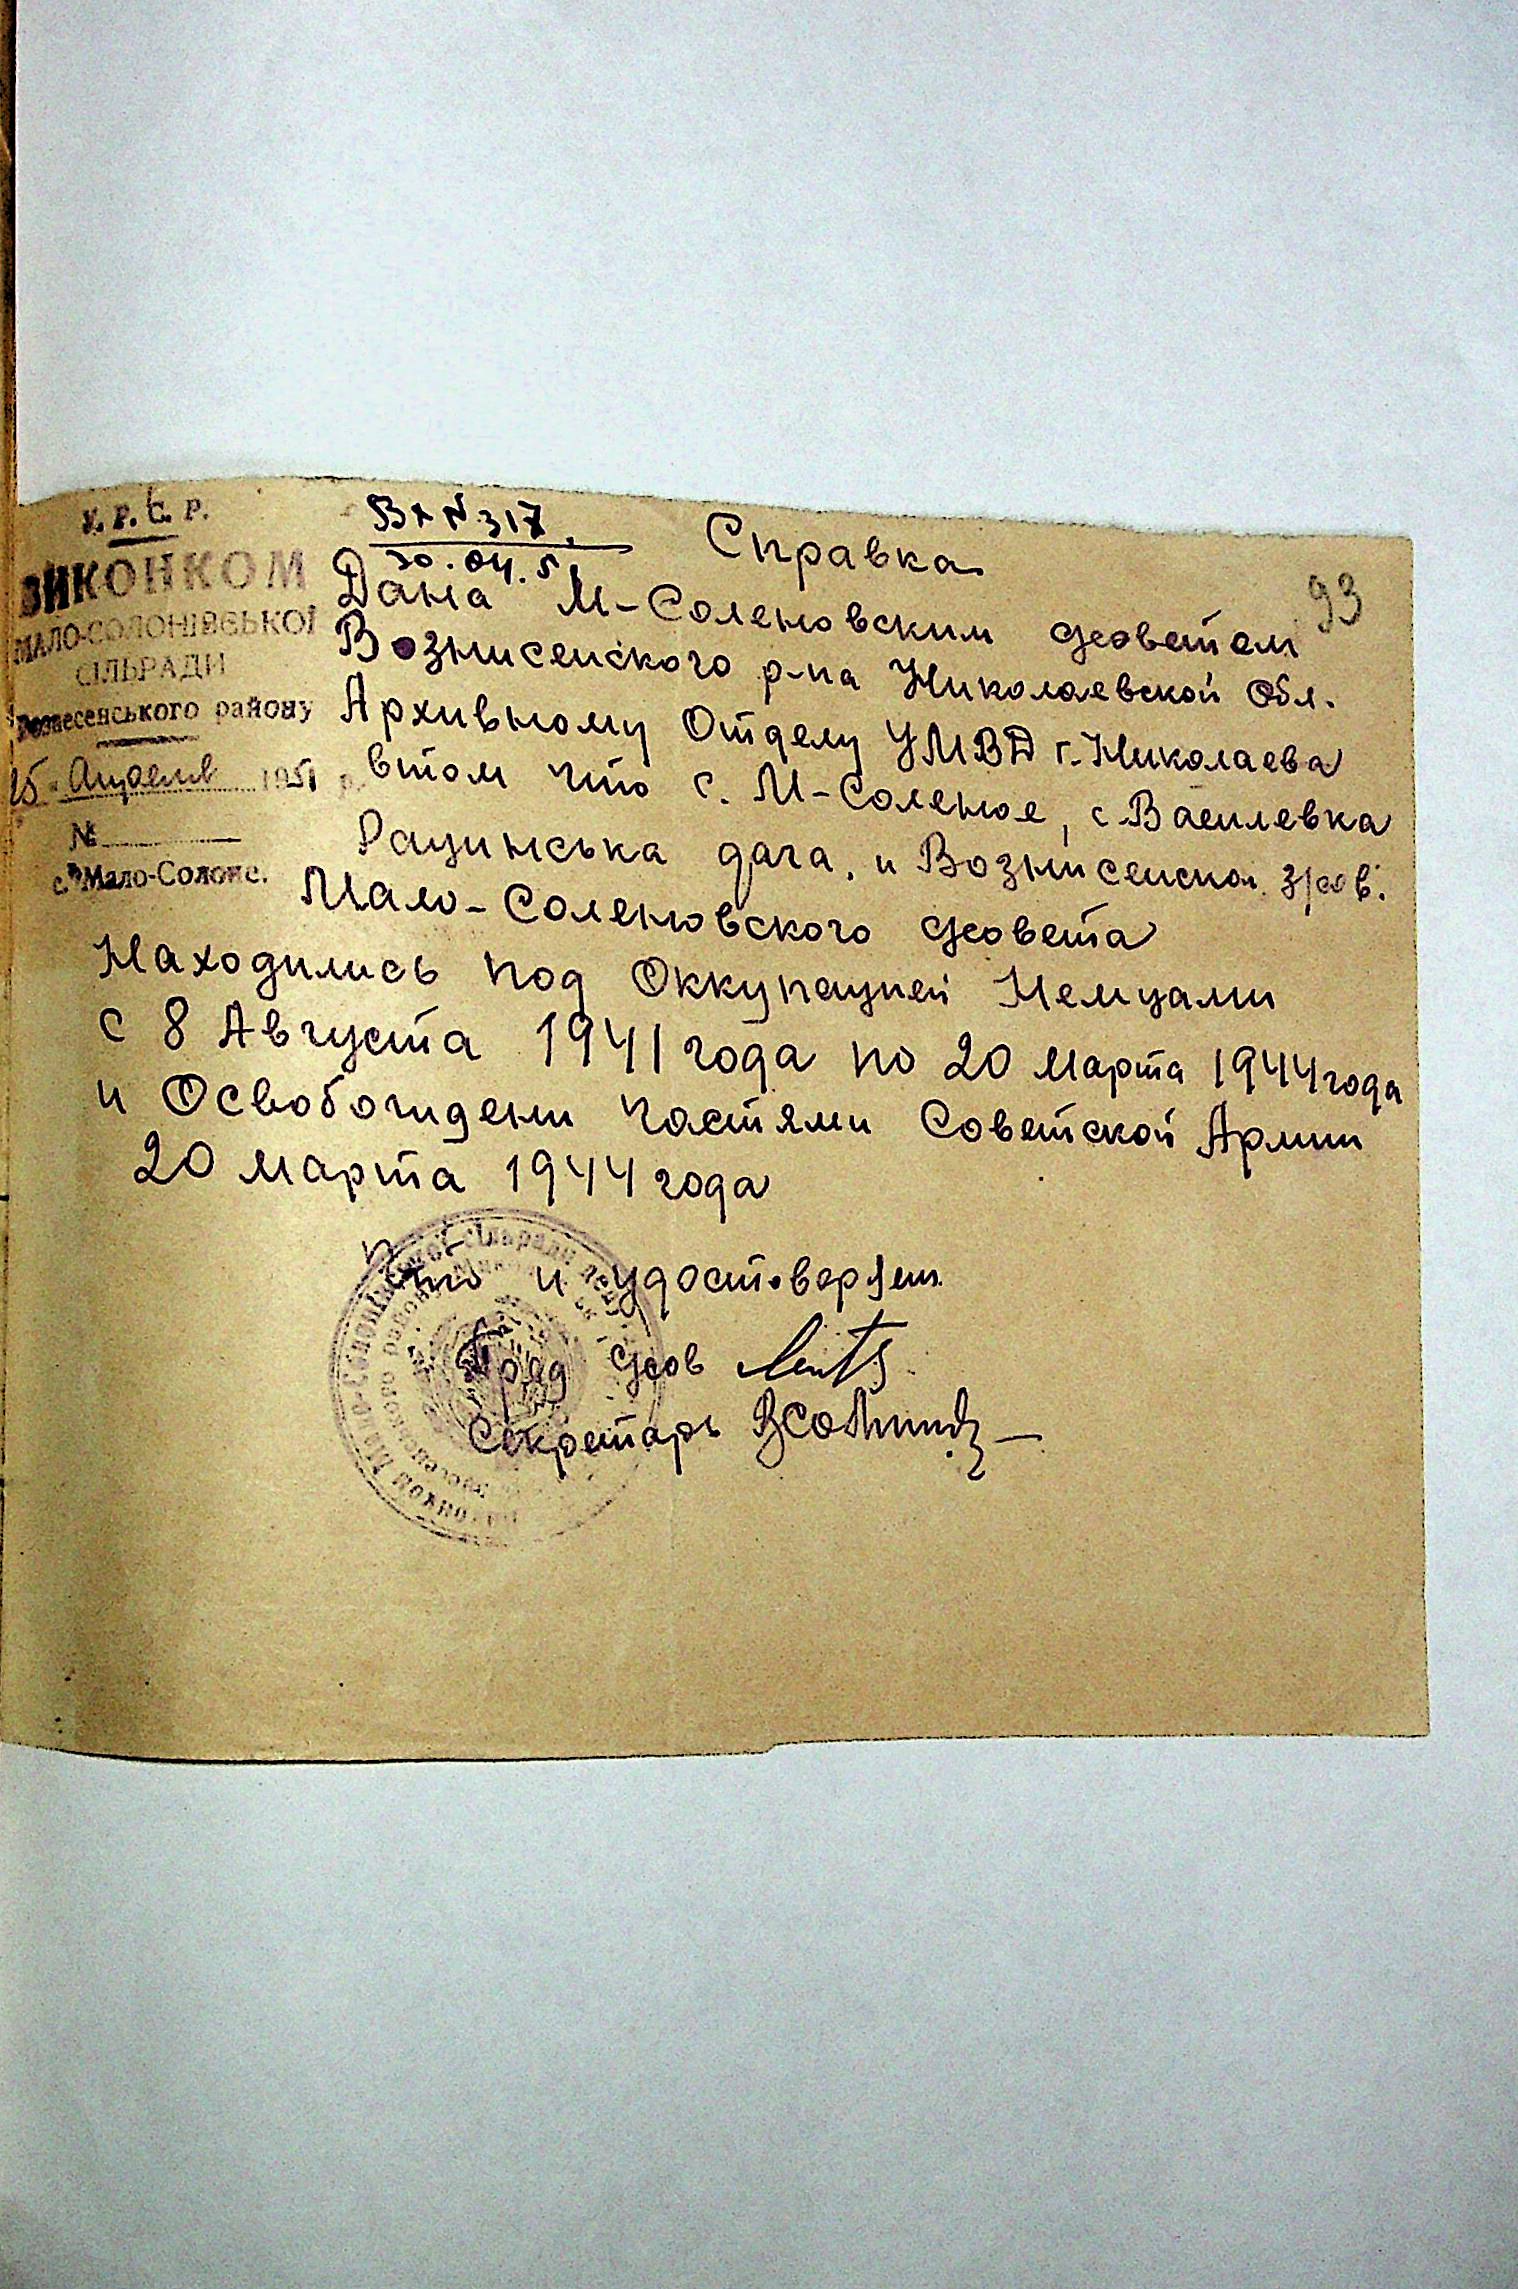 У. Р. С. Р.
ВИКОНКОМ
МАЛО-СОЛОНІВСЬКОЇ
СІЛЬРАДИ
Вознесенського району
25 Апреля 1951 р.
№
с. Мало-Солоне.
Вх № 317.
30.04.51
93
Справка
Дана М-Соленовским с/советом
Вознисенского р-на Николаевской Обл.
Архивному Отделу УМВД г. Николаева
втом что с. М-Соленое, с. Василевка
Рацинська дача, и Вознисенско
Мало-Соленовского с/совета
Находились под Оккупацией Немцами
с 8 Августа 1941 года по 20 марта 1944 года
и Освобождени частями Советской Армии
20 марта 1944 года
Что и удостоверяем
Пред с/сов
Секретарь